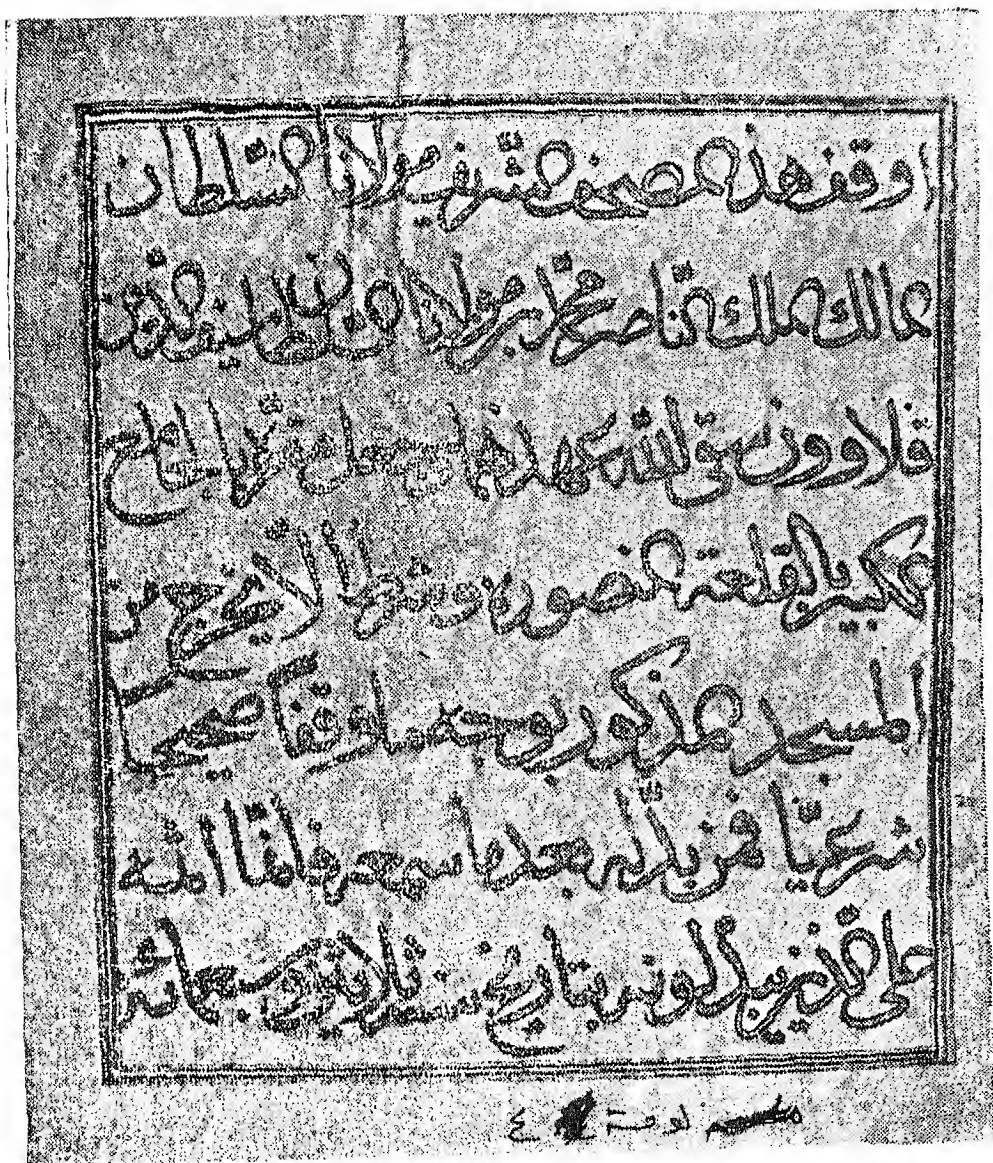 أوقف هذه المصحف الشريف مولانا السلطان
المالك الملك الناصر محمد بن مولانا السلطان المنصور
قلاوون سقى الله عهدهما
الكبير بالقلعة المنصورة وشرط أن لا يخرج من
المسجد المذكور بوجه ما وقفا صحيحا
شرعيا فمن بدله بعد ما سمعه فإنما اثمه
على الذين يبدلونه بتاريخ سنة ثلاثين وسبعمائة
لوحة ٤